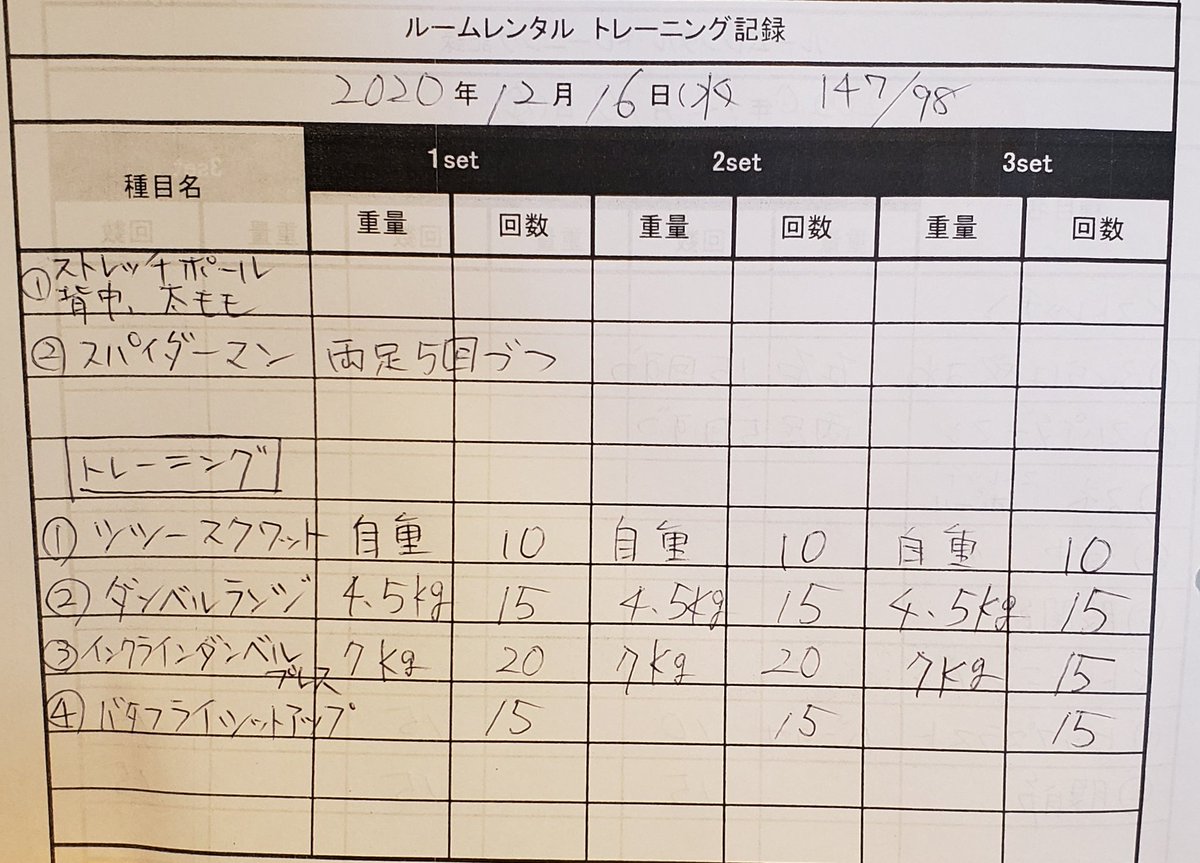 ルームレンタル トレーニング記録
2020年 12月 16日(水 147/98
種目名 1set 2set 3set
重量 回数 重量 回数 重量 回数
① ストレッチポール
背中、太モモ
② スパイダーマン 両足5回づつ
トレーニング
① ツツースクワット 自重 10 自重 10 自重 10
② ダンベルランジ 4.5kg 15 4.5kg 15 4.5kg 15
③ インクラインダンベル 7kg 20 7kg 20 7kg 15
プレス
④ バタフライシットアップ 15 15 15